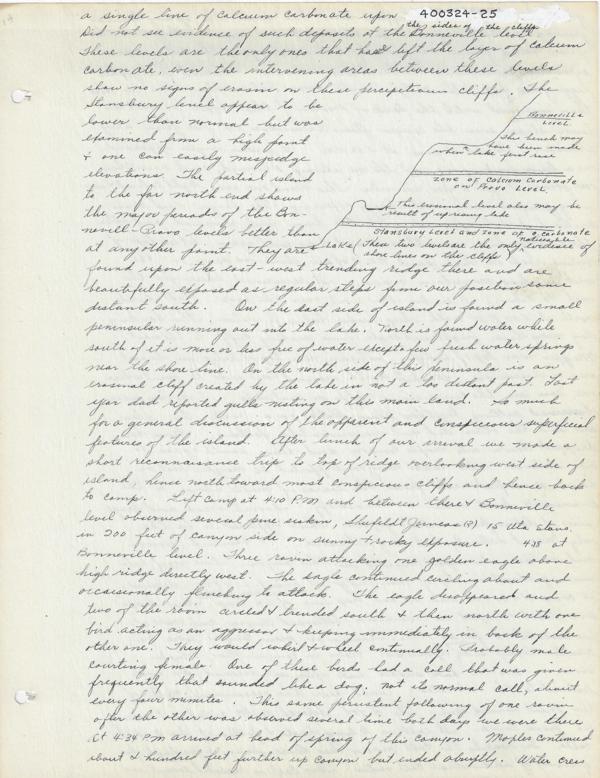 400324-25
a single line of calcium carbonate upon the sides of the cliffs
Did not see evidence of such deposits at the Bonneville level
These levels are the only ones that has left the layer of calcium
carbonate, even the intervening areas between these levels
show no signs of erosin on these percepetious cliffs. The
Stansbury level appear to be
lower than normal but was
examined from a high point
& one can easily misjudge
elevations. The partial island
to the far north end shows
the major periods of the Bon-
nevill-Provo levels better than
at any other point. They are
Bonneville
Level
This bench may
have been made
when lake first rose
Zone of Calcium Carbonate
on Provo Level
This erosinal level also may be
result of uprising lake
Stansbury Level and zone of c. carbonate
lake
(These two levels are the only noticeable evidence of
shore lines on the cliffs
found upon the east-west trending ridge there and are
beautifully exposed as regular steps from our position some
distant south. On the east side of island is found a small
peninsular running out into the lake. North is found water while
south of it is more or less free of water except a few fresh water springs
near the shore line. On the north side of this peninsula is an
erosinal cliff created by the lake in not a too distant past. Last
year dad reported gulls nesting on this main land. So much
for a general discussion of the apparent and conspicious superficial
features of the island. After lunch of our arrival we made a
short reconnaisance trip to top of ridge overlooking west side of
island, hence north toward most conspicious cliffs and hence back
to camp. Left camp at 4:10 P.M and between there & Bonneville
level observed several pine siskin, Shufeldt Junco (?) 15 Uta stans.
in 200 feet of canyon side on sunny & rocky exposure. 435 at
Bonneville level. Three raven attacking one golden eagle above
high ridge directly west. The eagle continued circling about and
occaisionally flinching to attack. The eagle disappeared and
two of the raven circled & trended south & then north with one
bird acting as an aggressor & keeping immediately in back of the
other one. They would whirl & wheel continually. Probably male
courting female. One of these birds had a call that was given
frequently that sounded like a dog; not its normal call, about
every four minutes. This same persistent following of one raven
after the other was observed several time both days we were there
At 4:34 P.M arrived at head of spring of this canyon. Maples continued
about & hundred feet further up canyon but ended abruptly. Water cress